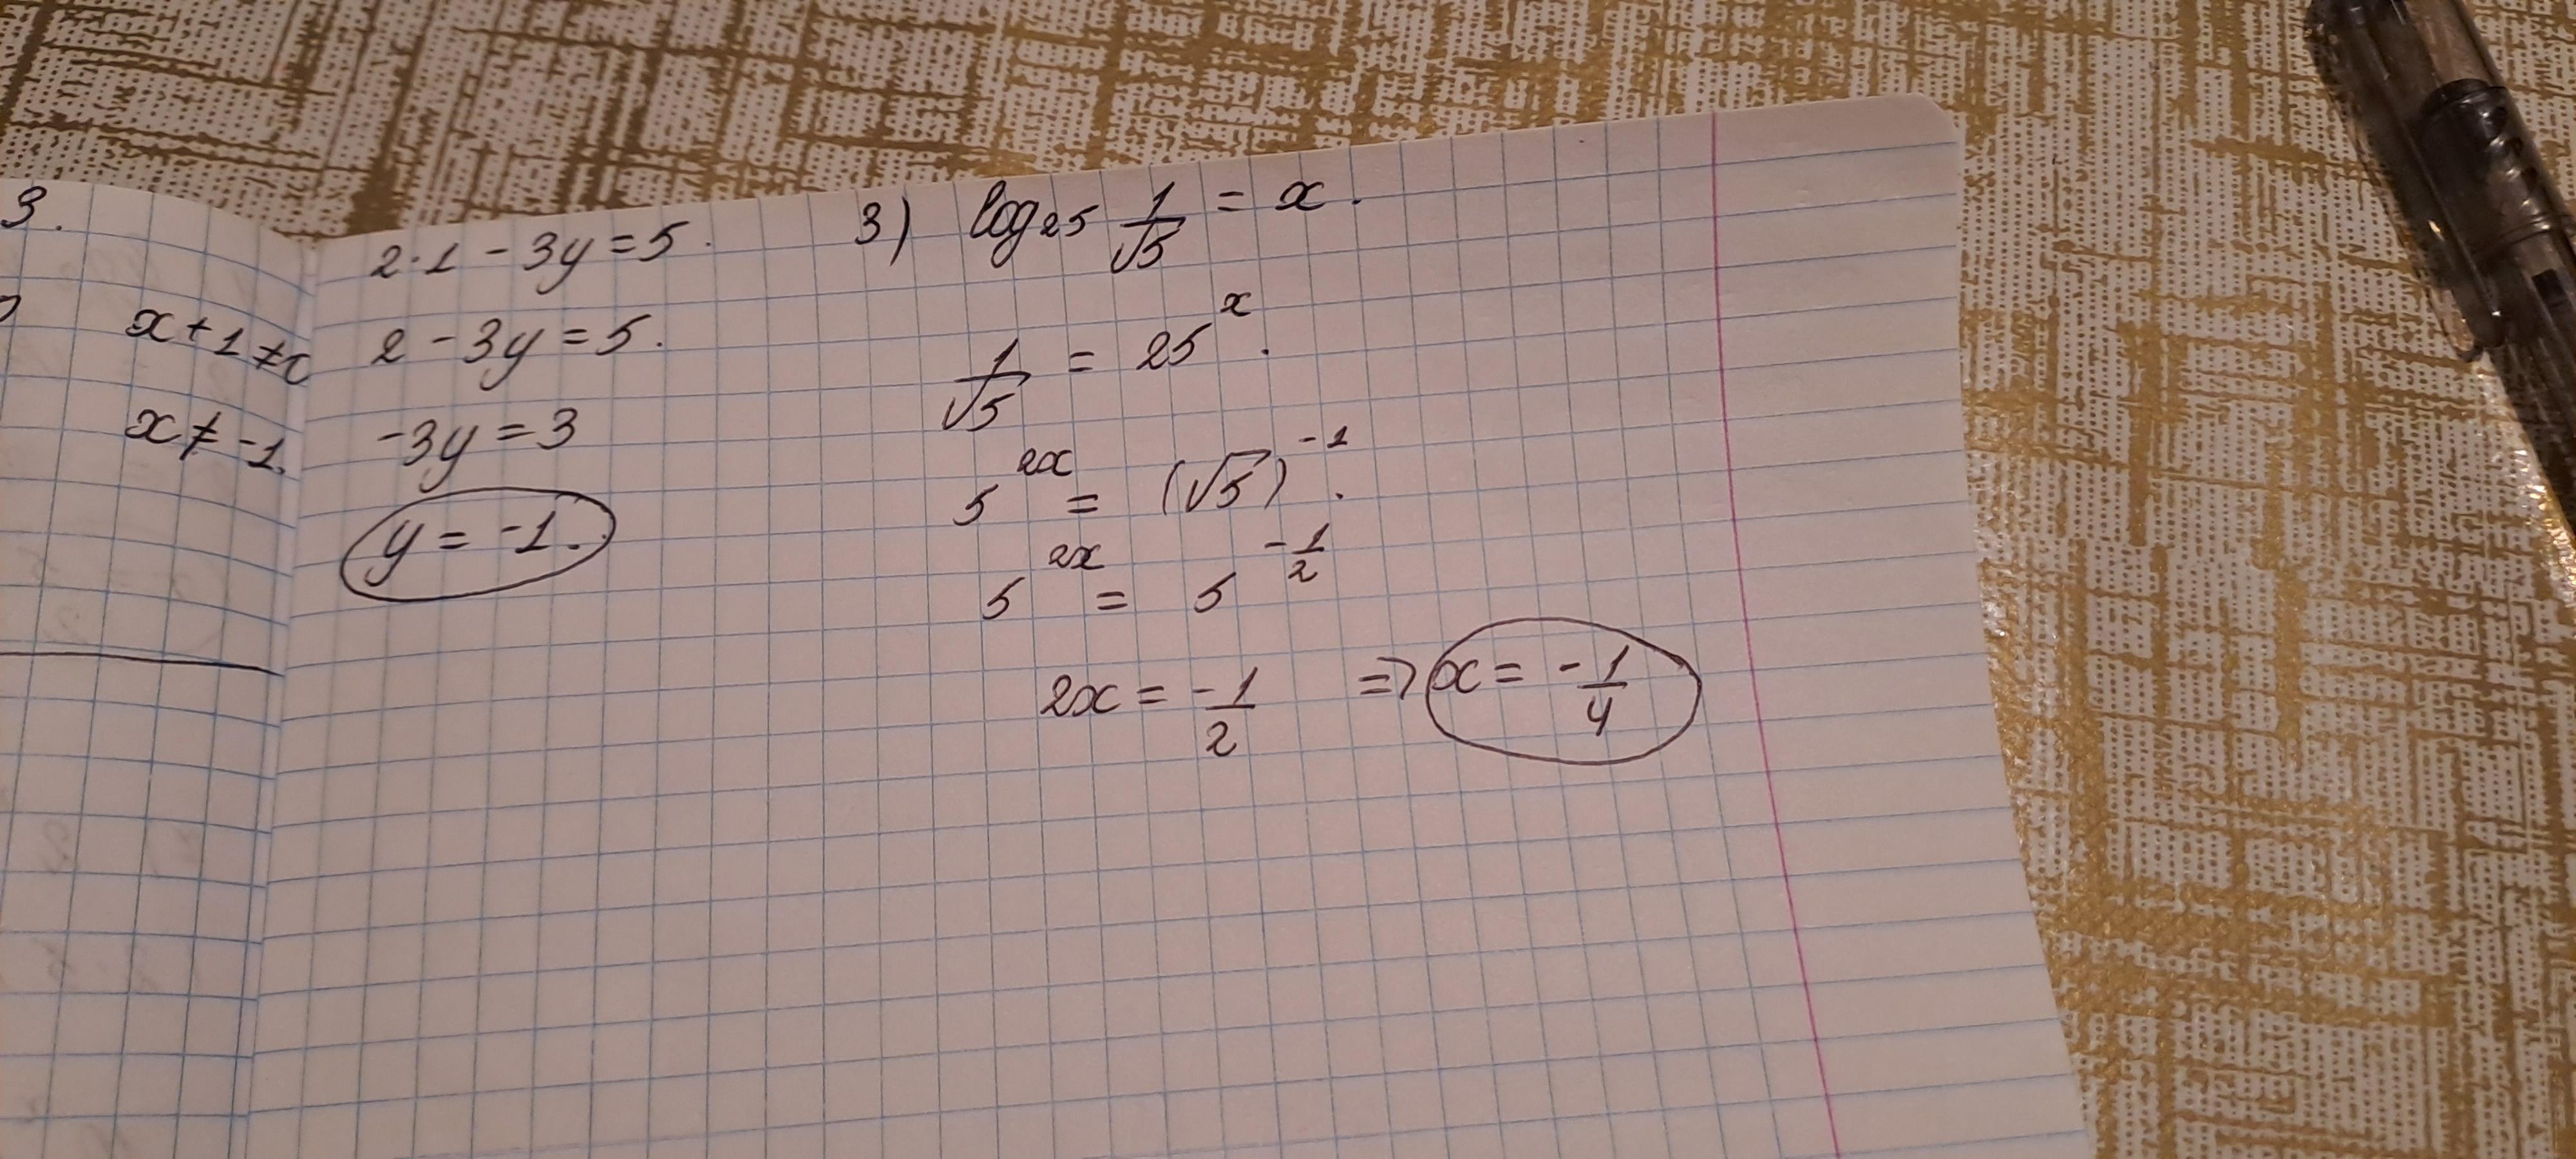 3.
x + 1 ≠
x ≠ -1.
2·1 - 3y = 5.
2 - 3y = 5.
-3y = 3
y = -1.
3) log₂₅ 1/√5 = x.
1/√5 = 25^x.
5^(2x) = (√5)^(-1).
5^(2x) = 5^(-1/2)
2x = -1/2 => x = -1/4